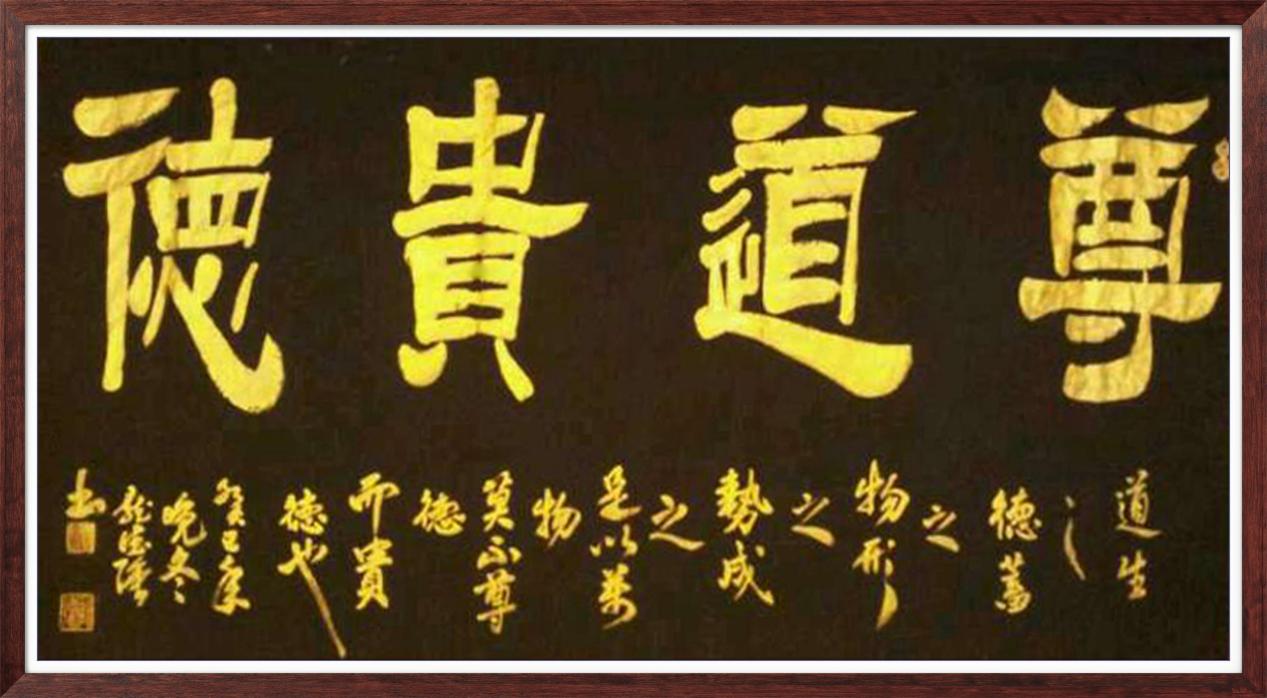 尊道貴德
道生
之
德蓄
之
物形
之
勢成
之
是以萬
物
莫不尊
德
而貴
德也
癸巳年
晚冬
书